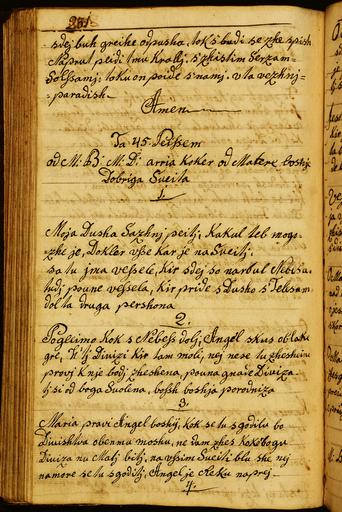 251.
sdej buh greihe odpusha, tok s'budi se zhe spish
Naprut pejdi tmu Krallj. s zhistim Serzam=
Solssamj: toku on poide s'namj. v ta vezhnj=
=paradish.
Amen
Ta 45. Peissem
od M: B: M: D: arria koker od Matere boshje
Dobriga Sveita
1.
Moja Dusha Sazhnj peitj, Kakul teb mogo=
zhe je, Dokler vsse kar je na Sveitj:
sa tu jma vesselè, kir sdej so narbul Nebesa,
tudj poune vessela, kir pride s Dusho s Telesam
dol ta druga pershona
2.
Poglimo Kok s Nebess dolj, Angel skus oblake
gre, K'tj Divizi kir tam moli, nej nese tu zheshenie
pravj k nje bodj zheshena, pouna gnade Diviza
tj si od boga Suolena, bossh boshja porodniza
3.
Maria pravi Angel boshij, Kok se tu sgodilu bo
Divishtva obenmu moshu, ne dam zhes koke boga
Diviza nu Matj bitj, na vssim Sveiti blu she nej
namore se tu sgoditj, Angel je reku naprej
4.